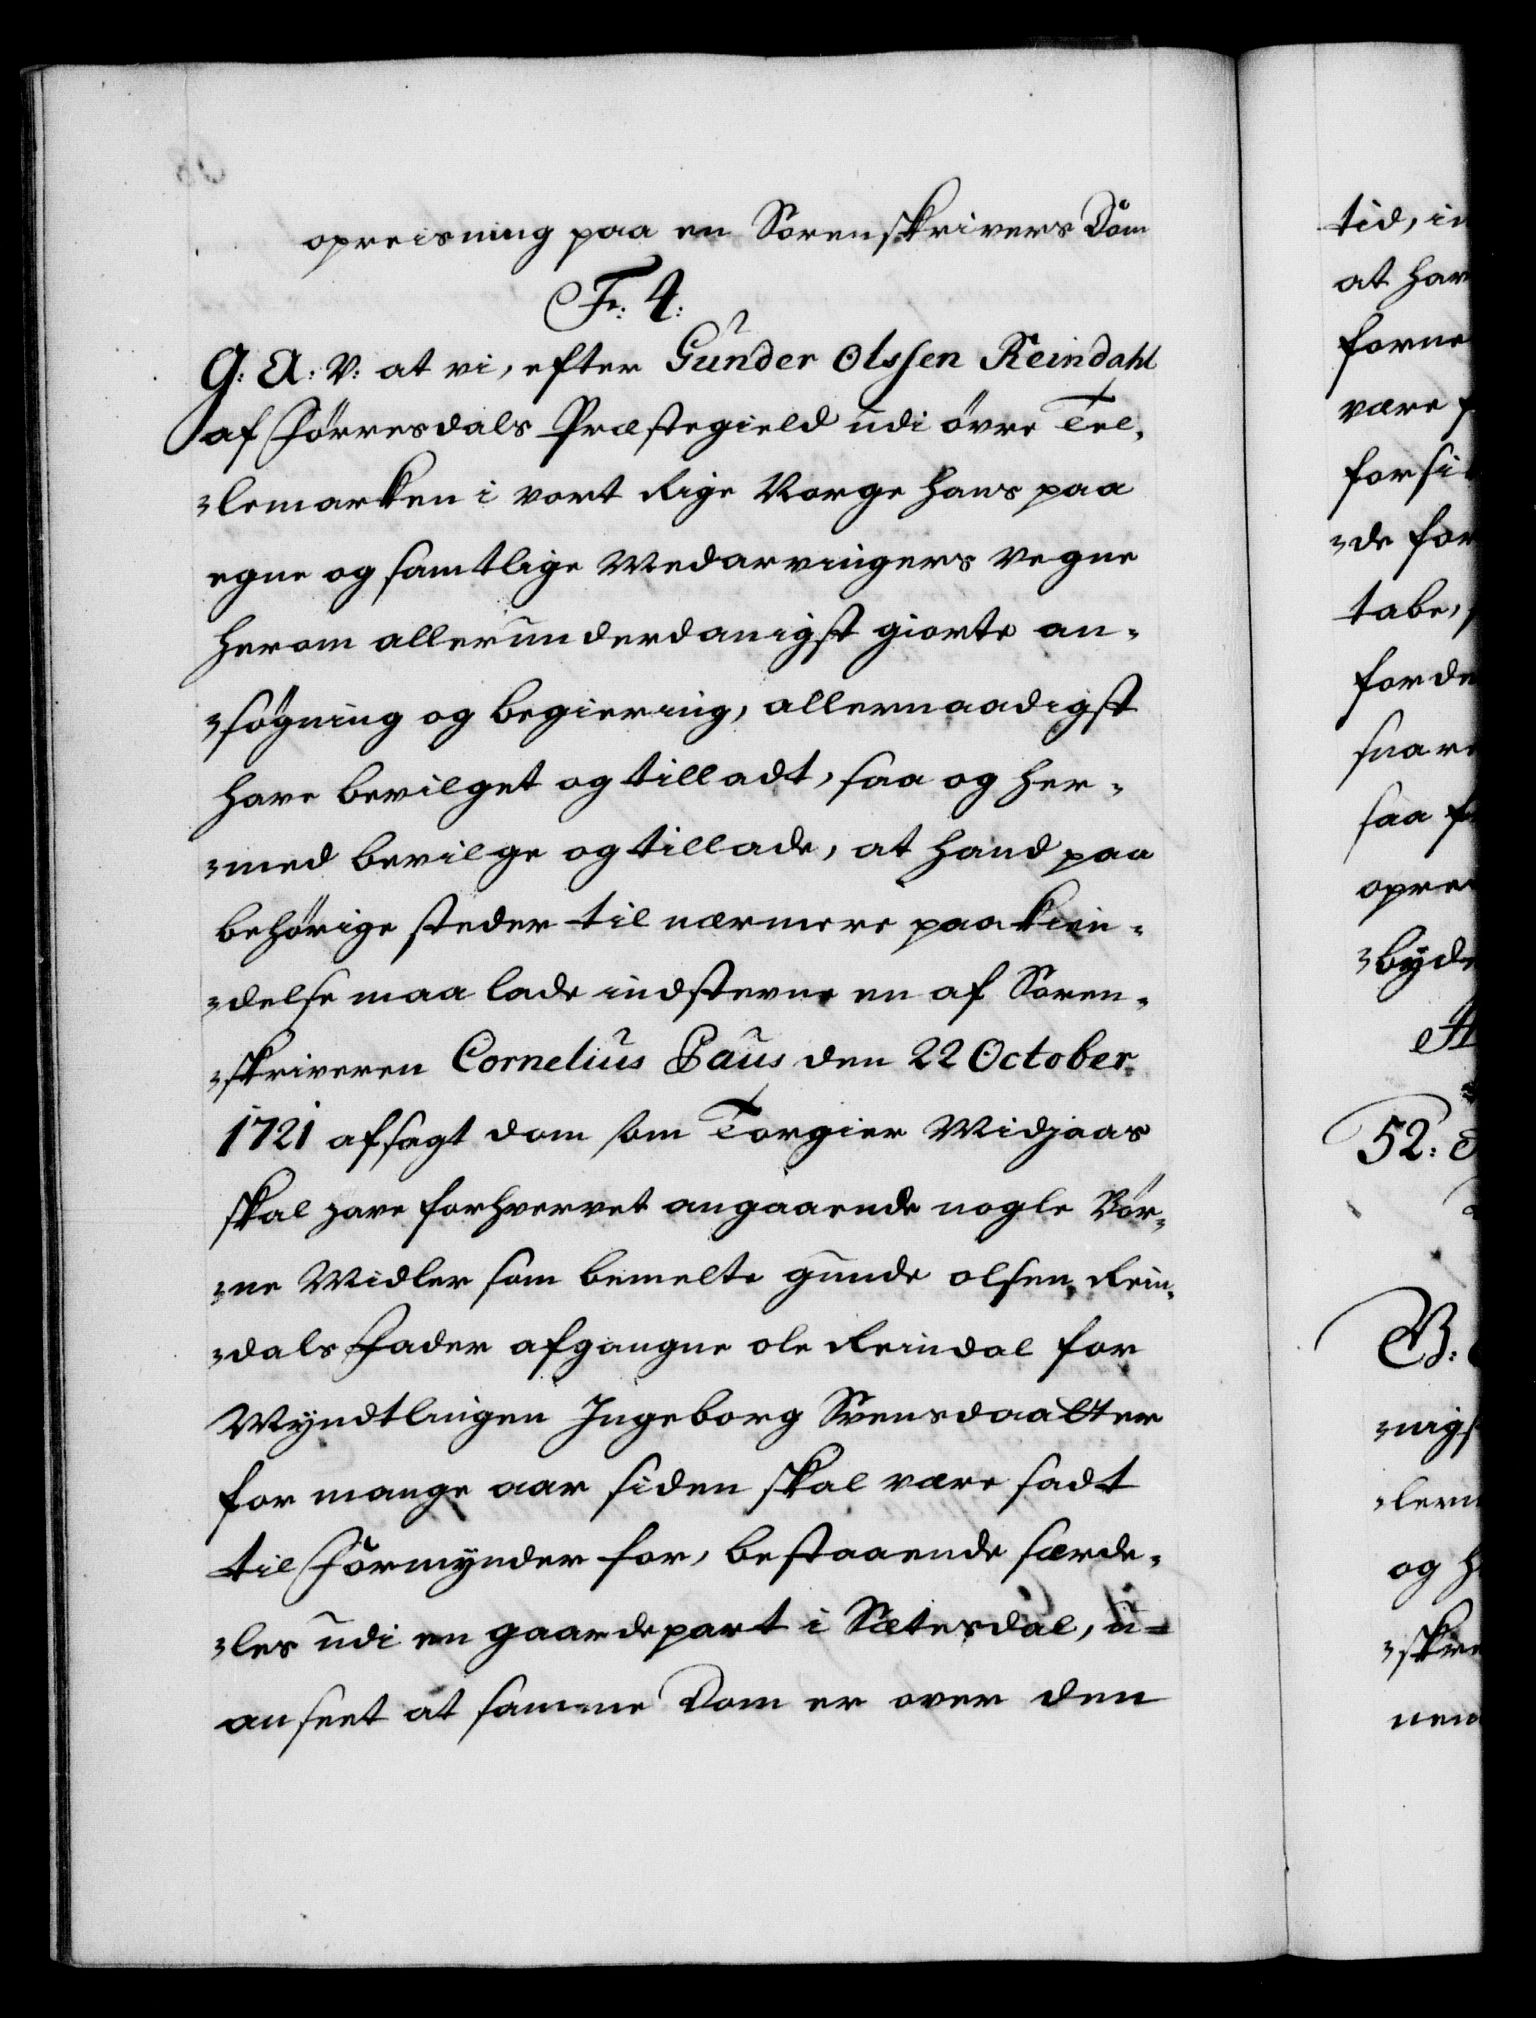 opreisning paa en Sorenskrivers Dom
Fr: 4:
G: A: V: at vi, efter Gunder Olssen Reindahl
af Förresdals Præstegield udi övre Tel-
lemarken i vort Rige Norge hans paa
egne og samtlige Medarvingers Vegne
herom allerunderdanigst giorte an-
søgning og begiering, allernaadigst
have bevilget og tilladt, saa og her-
med bevilge og tillade, at hand paa
behörige steder til nærmere paakien-
delse maa lade indstevne en af Soren-
skriveren Cornelius Paus den 22 October
1721 afsagt dom som Torgier Midjaas
skal have forhvervet angaaende nogle Bör-
ne Midler som bemelte Gunde Olsen Rein-
dals Fader afgangne Ole Reindal for
Myndtlingen Ingeborg Svensdaatter
for mange aar siden skal være sadt
til Formynder for, bestaaende særde-
les udi en gaardepart i Sætersdal, u-
anseet at samme Dom er over den
tid, in
at har
forne
være
forsi
de for
tabe,
forde
svare
saa
opre
byde
52:
B:
nigst
lern
og h
skre
nem